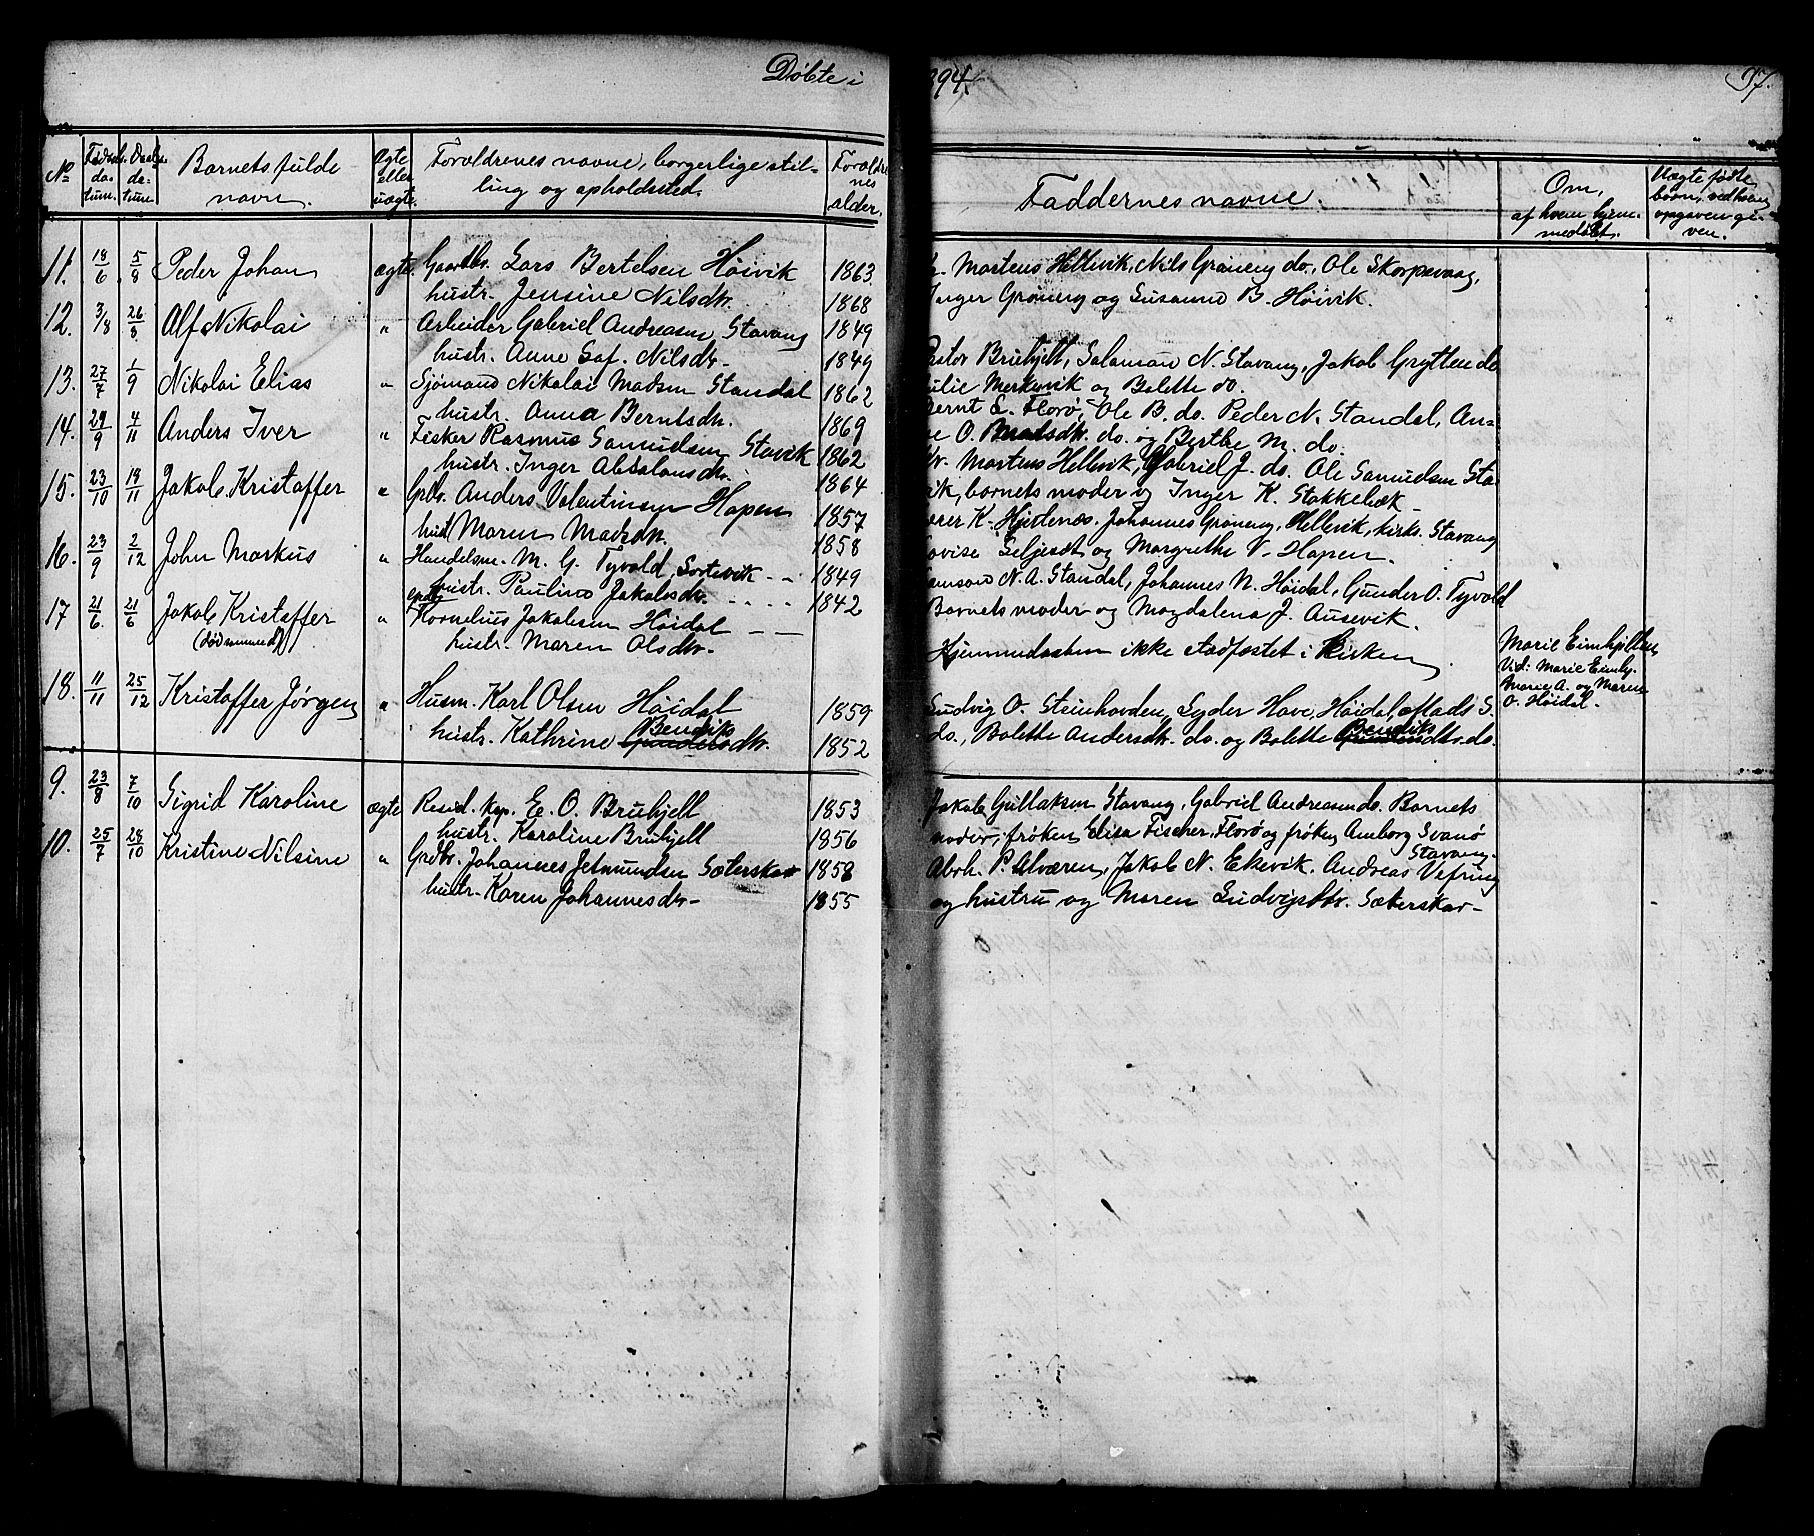 Döbte i
894.
97.
No
Fødsels datum.
Daabs datum.
Barnets fulde navn.
Ægte eller uægte.
Forældrenes navne, borgerlige stilling og opholdssted.
Forældrenes alder.
Faddernes navne.
Om, af hvem hjemmedöbt.
Uægte fødte børn, ved hvem opgaven given.
11. 18/6 5/8 Peder Johan ægte Gaardbr. Lars Bertelsen Höivik 1863
hustr. Jensine Nilsdtr. 1868
Martens Hellevik, Nils Gröneng do., Ole Skorpevaag,
Inger Gröneng og Susanne B. Höivik.
12. 3/8 26/8 Alf Nikolai " Arbeider Gabriel Andreasen Stavang 1849
hustr. Anne Sof. Nilsdtr. 1849
Pastor Bruhjell, Salamon N. Stavang, Jakob Grytten do
Julie Merkevik og Bolette do.
13. 27/7 1/9 Nikolai Elias " Sjömand Nikolai Madsen Standal 1862
hustr. Anna Berntsdtr. 1869
Bernt E. Florö, Ole B. do. Peder N. Standal, An=
ne O. Madsdtr. do. og Berthe M. do.
14. 29/9 4/11 Anders Iver " Fisker Rasmus Samuelsen Stavik 1862
hustr. Inger Absalonsdtr. 1864
Martens Hellevik, Gabriel J. do. Ole Samuelsen Sta
vik, barnets moder og Inger K. Stokkebæk
15. 23/10 18/11 Jakob Kristoffer " Grdbr. Anders Valentinsen Hopen 1857
hust Maren Madsdtr. 1858
K. Hjertenæs, Johannes Gröneng, Hellevik, kirks. Stavang
Lovise Seljeset og Margrethe V. Hopen.
16. 23/9 2/12 John Markus " Handelsm. M. G. Tyvold, Sortevik 1849
hustr. Pauline Jakobsdtr. 1842
Samson N. A. Standal, Johannes N. Höidal, Gunder O. Tyvold
Barnets moder og Magdalena J. Ausevik.
17 21/6. 21/6 Jakob Kristoffer " Kornelius Jakobsen Höidal
(död nummed)
hustr. Maren Olsdtr.
Hjemmedaaben ikke stadfæstet i Kirken
Marie Eimhjellen
Vid: Marie Eimhj.
Marie A. og Maren
O. Höidal.
18. 11/11 25/12 Kristoffer Jørgen " Husm. Karl Olsen Höidal 1859
hustr. Kathrine Bendiksdtr. 1852
Ludvig O. Steinhovden, Lyder Have, Höidal, Mads S.
do., Bolette Andersdtr. do. og Bolette Bendiksdtr. do.
9. 23/8 7/10 Sigrid Karoline ægte Resid. kap. E. O. Bruhjell 1853
hustr. Karoline Bruhjell 1856
Jakob Gullaksen Stavang, Gabriel Andreasen do. Barnets
moder, fröken Elisa Fischer, Florö og fröken Amborg Svanö
10. 25/7 28/10 Kristine Nilsine " Grdbr. Johannes Jetmundsen Sæterskar 1858
hustr. Karen Johannesdtr. 1855
Stavang.
Abrh. P. Alværen, Jakob N. Ekevik. Andreas Vefring
og hustru og Maren Ludvigsdtr. Sæterskar